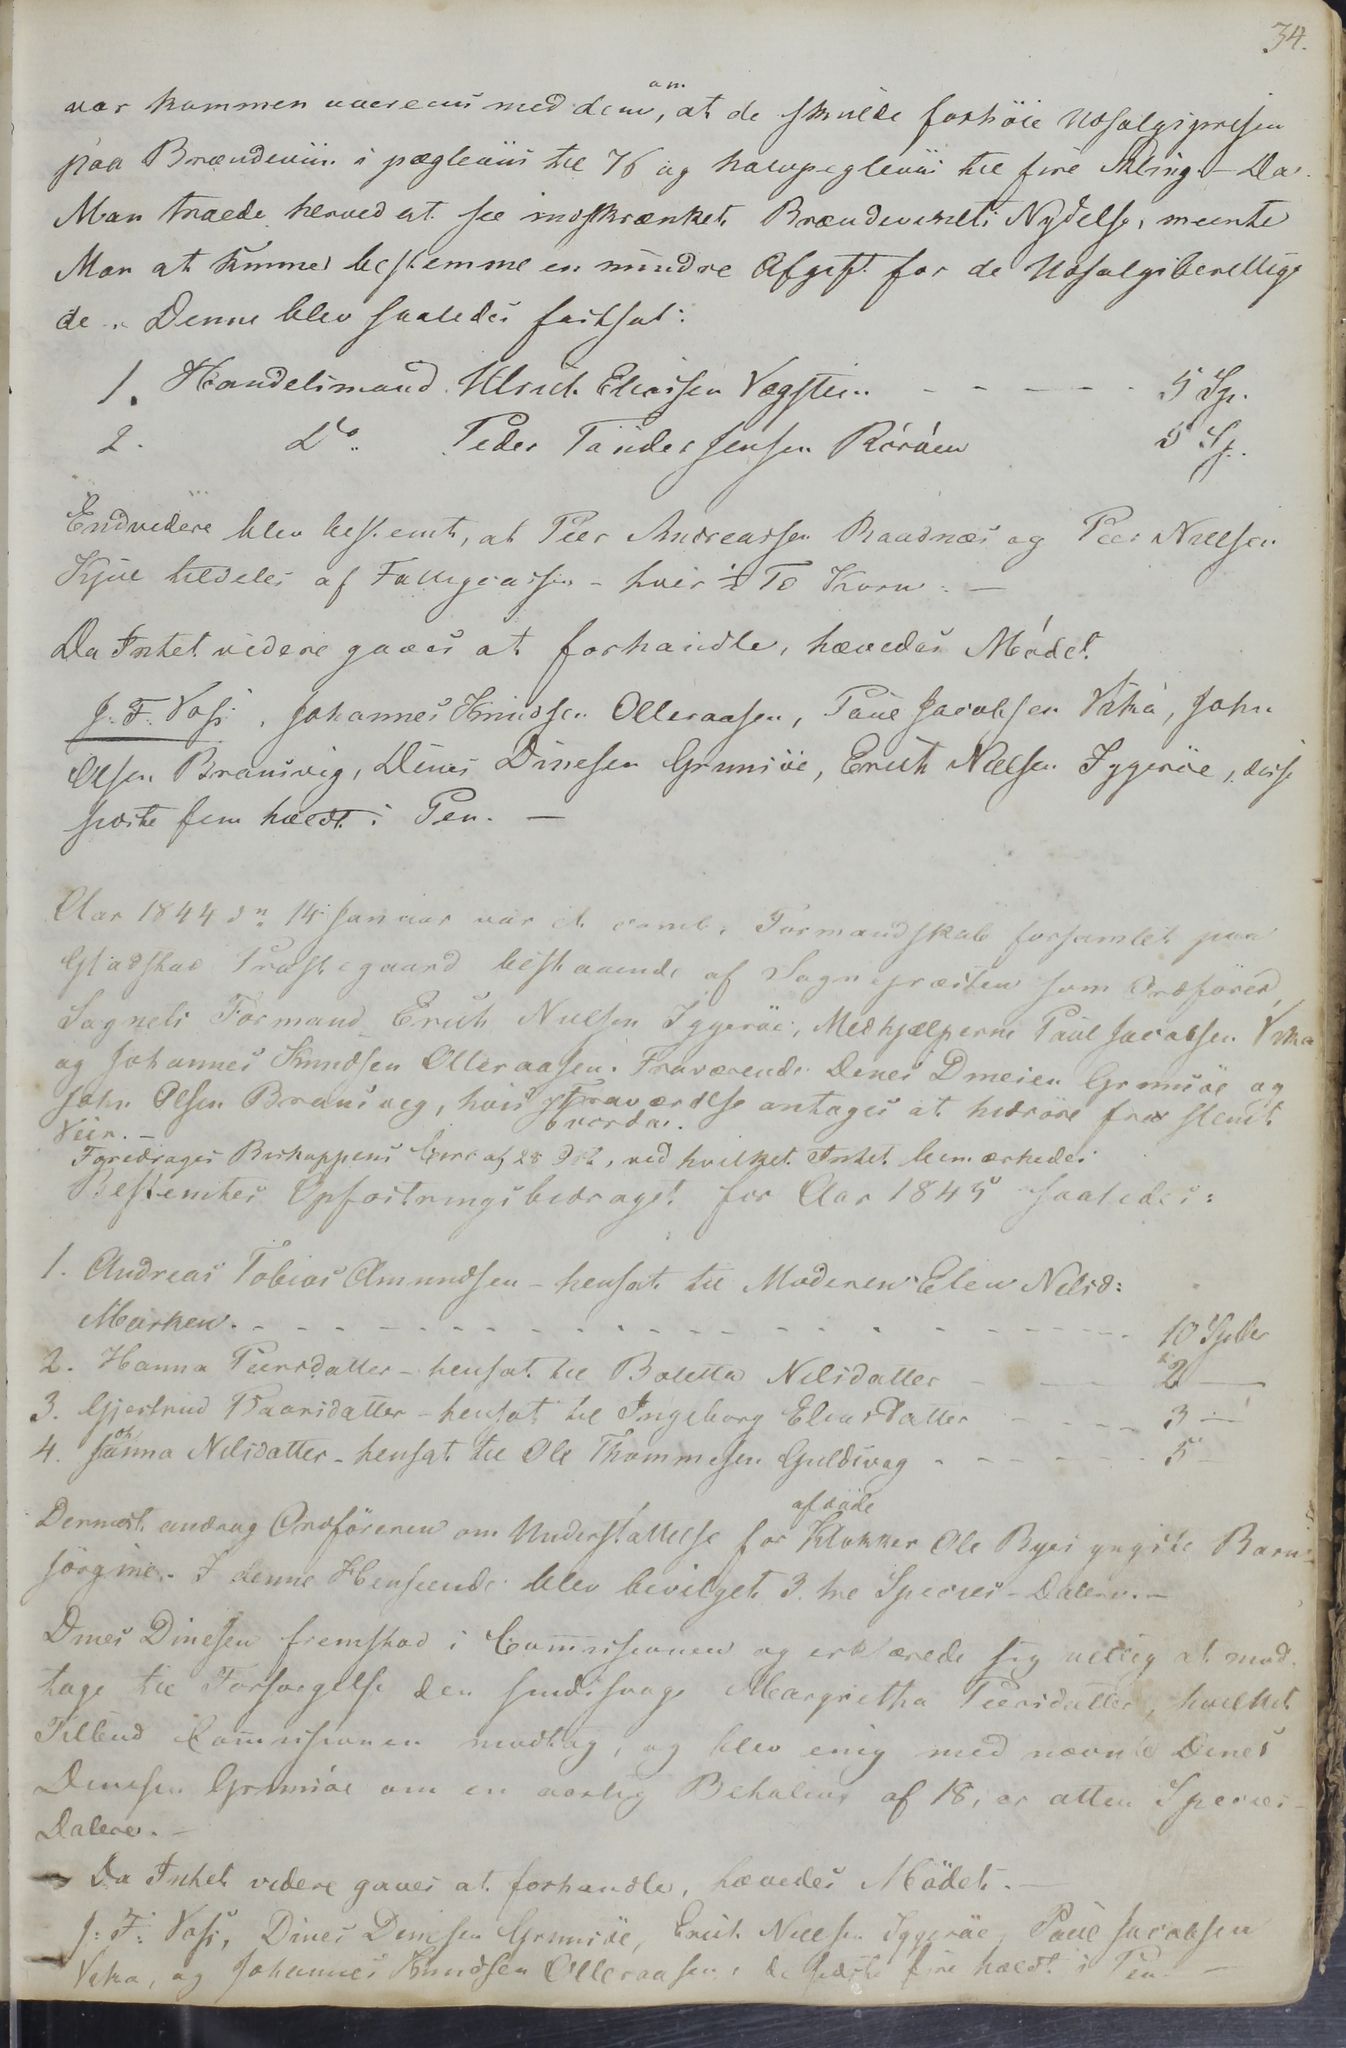 34.
var kommen overeens med dem om, at de skulde forhöie Udsalgsprisen
paa Brændeviin i pægleviis til 7 ß og halvpægleviis til fire Skling. - Da
Man troede herved at see indskrænket Brændevinets Nydelse, meente
Man at kunne bestemme en mindre Afgift for de Udsalgsberettige
de. Denne blev saaledes fastsat:
1. Handelsmand Ulrich Eliassen Vagstein - - - - - 5 Sp.
2. Do. Peder Tander Jensen Röröen 5 Sp.
Endvidere blev bestemt, at Peer Andreassen Raadnæs og Peer Nielsen
Kjul tildeles af Fattigcassen - hver ½ Tö Korn. -
Da Intet videre gaves at forhandle, hævedes Mödet.
J. F. Voss, Johannes Knudsen Olleraasen, Paul Jacobsen Vikaa, John
Olsen Bransvig, Dines Dinesen Grunsöe, Erich Nielsen Iygeröe, disse
sidste fem holdt i Pen. -
Aar 1844 dn 14 Januar var et comb. Formandskab forsamlet paa
Gladstad Præstegaard bestaaende af Sognepræsten som Ordförer,
Sognets Formand Erich Nielsen Iygeröe, Medhjælperne Paul Jacobsen Vikaa
og Johannes Knudsen Olleraasen. Fraværende Dines Dinesen Grunsöe og
John Olsen Bransvig, hvis Fraværelse antages at hidröre fra slemt
Veir. -
Foredrages Biskoppens Circ af 28 Oct, ved hvilket Intet bemærkedes
Bestemtes Opfostringsbidraget for Aar 1845 saaledes:
1. Andreas Tobias Amundsen - hensat til Moderen Elen Nilsd:
Marken. - - - - - - 10 Spdler
2. Hanna Peersdatter - hensat til Boletta Nilsdatter - - 2 -
3. Gjertrud Baarsdatter - hensat til Ingeborg Eliasdatter - - 3 -
4. Johanna Nilsdatter - hensat til Ole Thommesen Guldsvag - - - 5 -
Dernæst androg Ordföreren om Understöttelse for afdöde Klokker Ole Byes yngste Barn
Jörgine. - I denne Henseende blev bevilget 3. tre Species-Dalere. -
Dines Dinesen fremstod i Commissionen og erklærede sig villig at mod-
tage til Forsörgelse den sindssvage Margretha Peersdatter, hvilket
Tilbud Commissionen modtog, og blev enig med nævnte Dines
Dinesen Grunsöe om en aarlig Betaling af 18, er atten Species-
Dalere. -
Da Intet videre gaves at forhandle, hævedes Mödet. -
J. F. Voss, Dines Dinesen Grunsöe, Erich Nielsen Iygeröe, Paul Jacobsen
Vikaa, og Johannes Knudsen Olleraasen, de sidste fire holdt i Pen. -